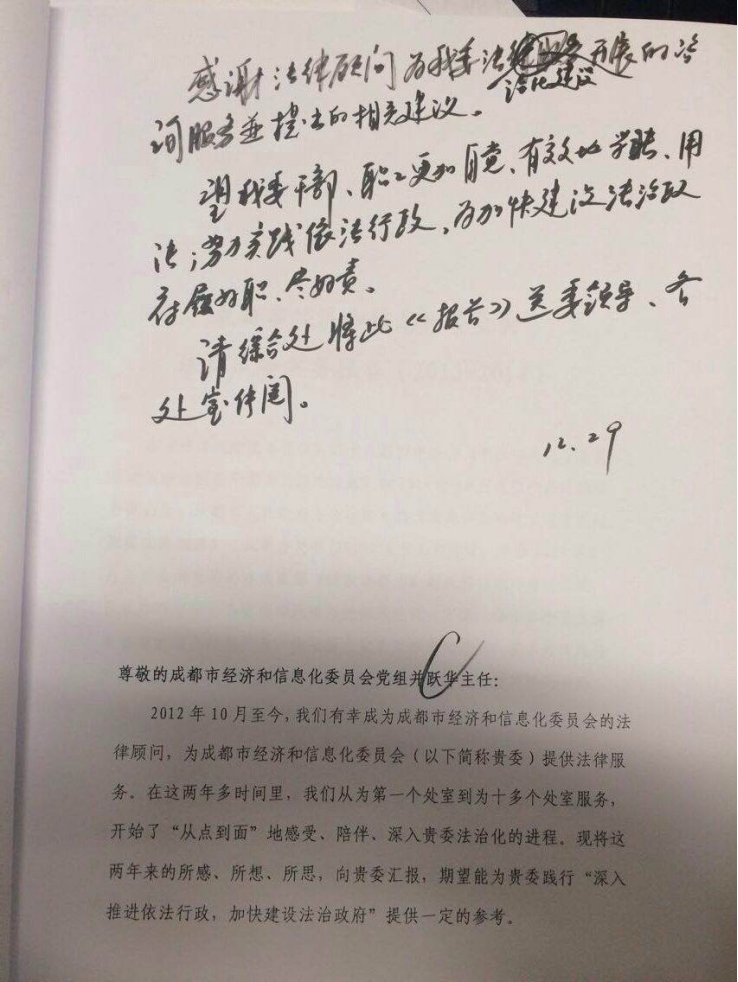 感谢法律顾问为我委法治化建设开展的咨
询服务并提出的相关建议。
望我委干部、职工更加自觉、有效地学法、用
法,努力实践依法行政,为加快建设法治政
府履好职、尽好责。
请综合处将此《报告》送委领导、各
处室传阅。
12.29
尊敬的成都市经济和信息化委员会党组并跃华主任:
2012年10月至今,我们有幸成为成都市经济和信息化委员会的法
律顾问,为成都市经济和信息化委员会(以下简称贵委)提供法律服
务。在这两年多时间里,我们从为第一个处室到为十多个处室服务,
开始了“从点到面”地感受、陪伴、深入贵委法治化的进程。现将这
两年来的所感、所想、所思,向贵委汇报,期望能为贵委践行“深入
推进依法行政,加快建设法治政府”提供一定的参考。